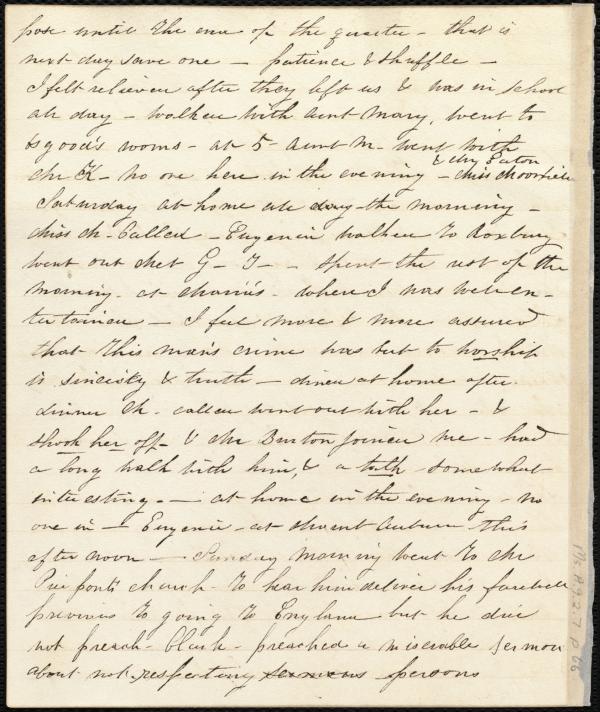 pose until the end of the quarter - that is
next day save one - patience & shuffle -
I felt relieved after they left us & was in school
all day - walked with aunt Mary, went to
Osgood's rooms - at 5 - aunt M - went with
Mr K - no one here in the evening - Miss Moorfield
& Mr Eaton
Saturday at home all day the morning -
Miss M - called - Eugenia walked to Roxbury
went out met G - T - - spent the rest of the
morning - at Maria's - where I was well en-
tertained - I feel more & more assured
that this man's crime was but to worship
in sincerity & truth - dined at home after
dinner M. called went out with her - &
shook her off - & Mr Burton joined me - had
a long walk with him, & a talk - somewhat
interesting. - at home in the evening - no
one in - Eugenia - at Mount Auburn this
afternoon - Sunday morning went to Mr
Pierpont's church - to hear him deliver his farewell
previous to going to England but he did
not preach - Clark - preached a miserable sermon
about not respecting sermons persons
Ms.A.9.2.7 p 66